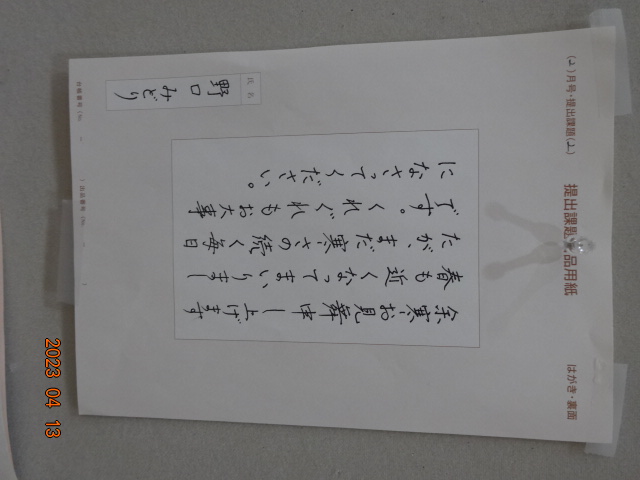 月号・提出課題
提出課題作品用紙
はがき・裏面
余寒お見舞申し上げます
春も近くなってまいりまし
たが、まだ寒さの続く毎日
です。くれぐれもお大事
になさってください。
氏名
野口みどり
2023 04 13